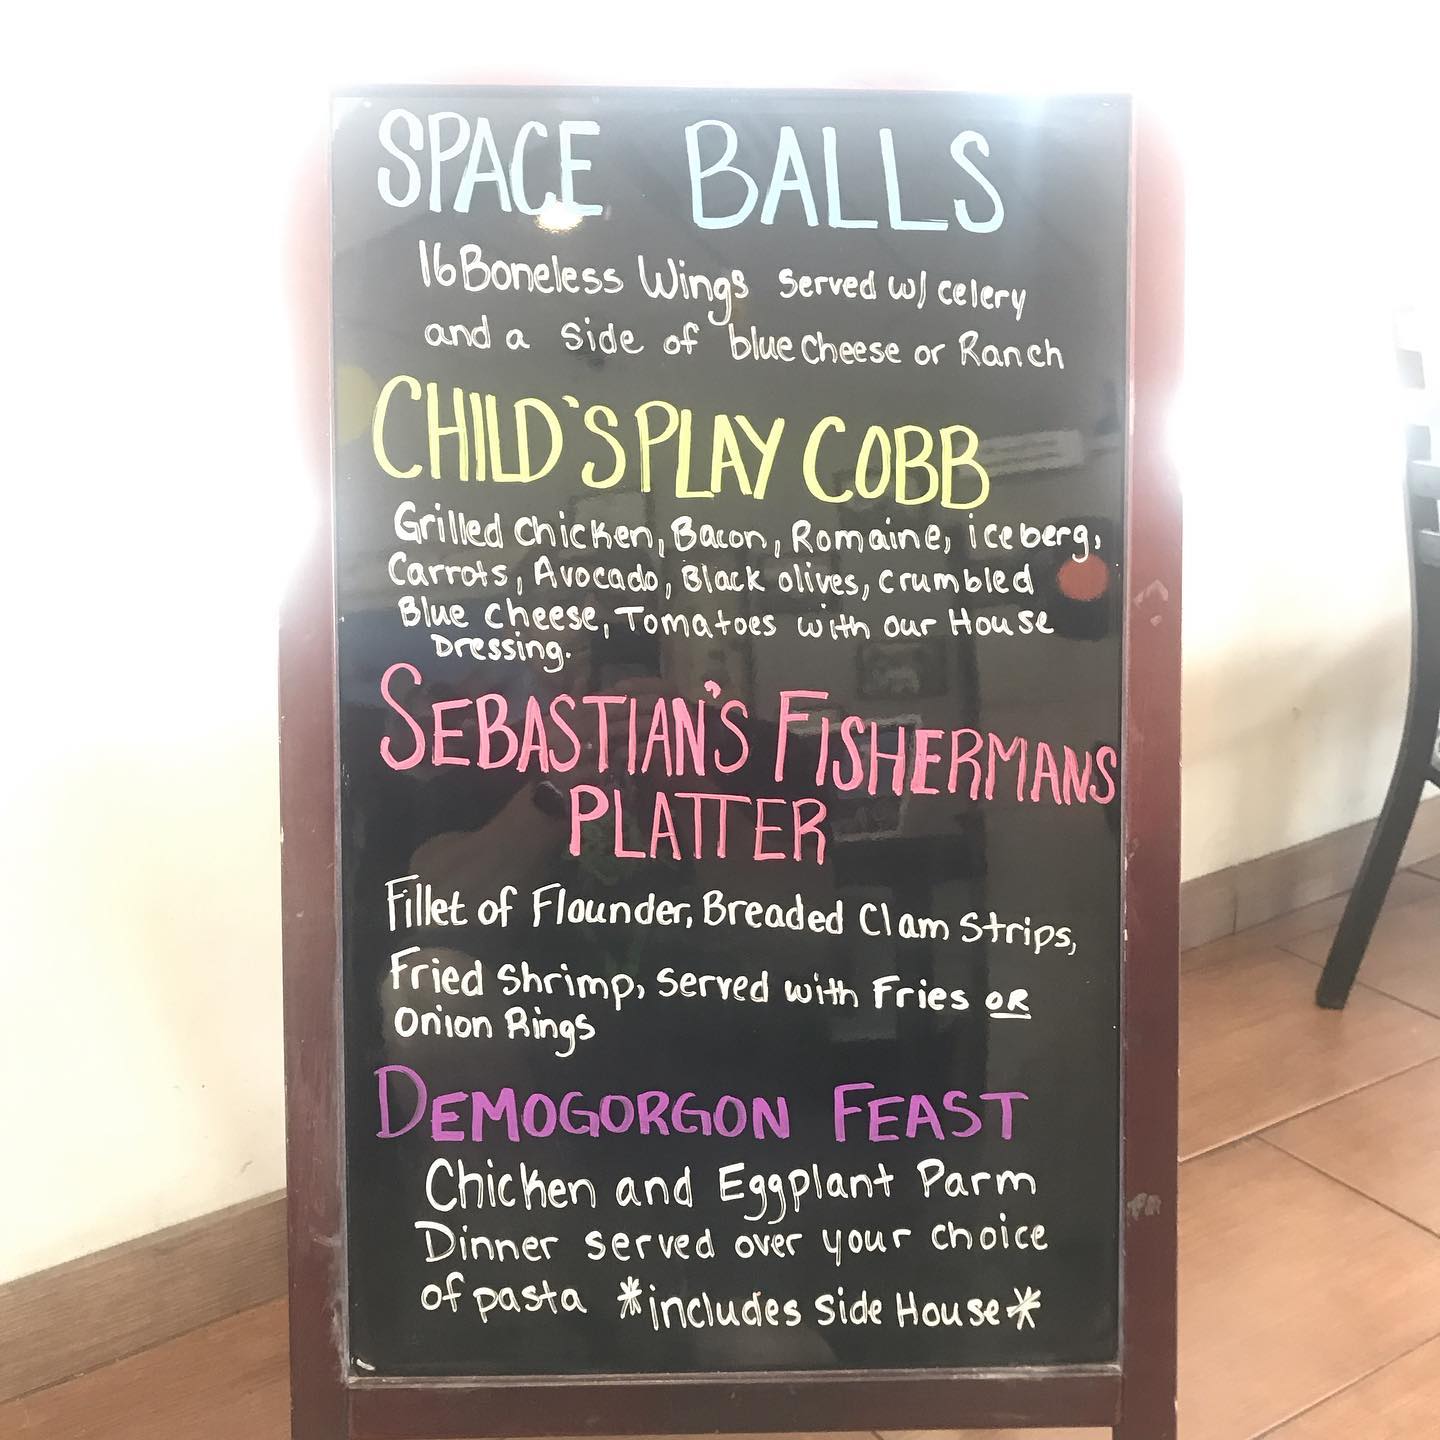 SPACE BALLS
16 Boneless Wings served w/ celery
and a side of blue cheese or Ranch
CHILD'S PLAY COBB
Grilled Chicken, Bacon, Romaine, iceberg,
Carrots, Avocado, Black olives, crumbled
Blue cheese, Tomatoes with our House
Dressing.
SEBASTIAN'S FISHERMANS
PLATTER
Fillet of Flounder, Breaded Clam Strips,
Fried Shrimp, Served with Fries OR
Onion Rings
DEMOGORGON FEAST
Chicken and Eggplant Parm
Dinner served over your choice
of pasta *includes side House*